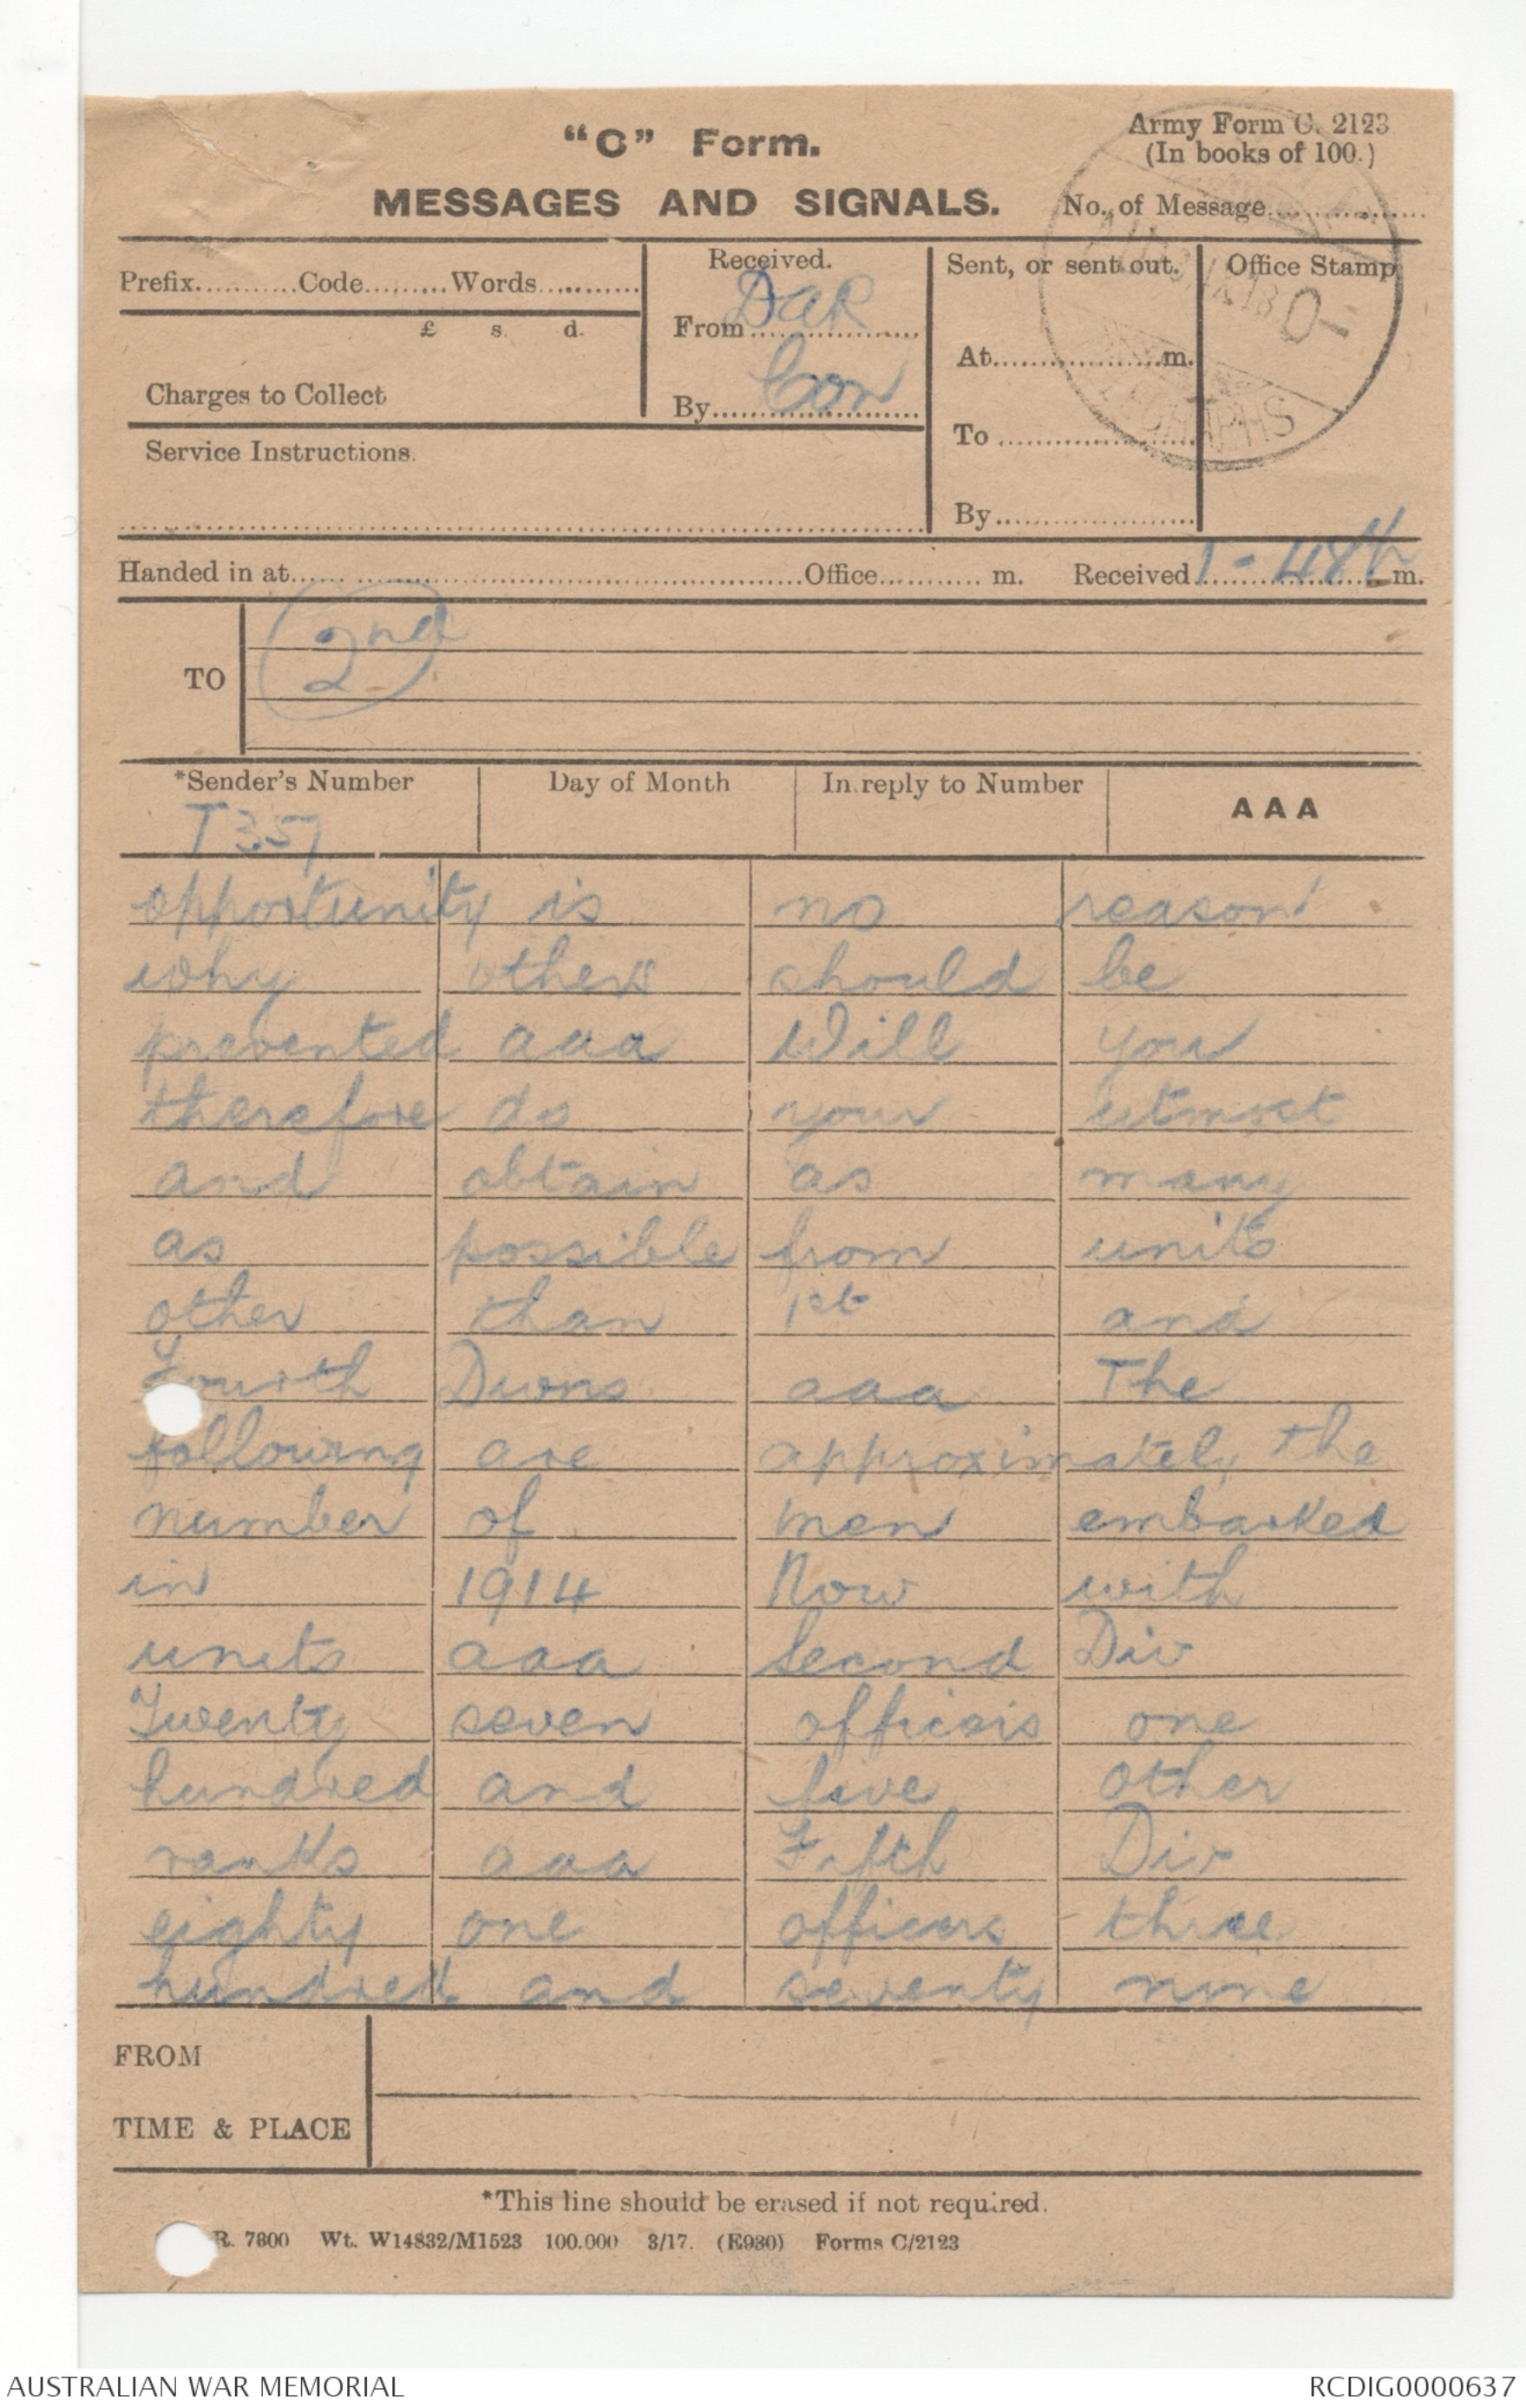 "C" Form.
Army Form C. 2123
(In books of 100.)
MESSAGES AND SIGNALS.
No. of Message
Prefix Code Words
£ s. d.
Charges to Collect
Service Instructions.
Received.
From DAR
By Con
Sent, or sent out.
At m.
To
By
Office Stamp
Handed in at Office m. Received 1-48 m.
TO
2nd
*Sender's Number Day of Month In reply to Number AAA
T357
opportunity is no reason
why others should be
prevented aaa Will you
therefore do your utmost
and obtain as many
as possible from units
other than 1st and
Fourth Divns aaa The
following are approximately the
number of men embarked
in 1914 Now with
units aaa Second Div
Twenty seven officers one
hundred and five other
ranks aaa Fifth Div
eighty one officers three
hundred and seventy nine
FROM
TIME & PLACE
*This line should be erased if not required.
R. 7800 Wt. W14832/M1523 100.000 3/17. (E930) Forms C/2123
AUSTRALIAN WAR MEMORIAL
RCDIG0000637